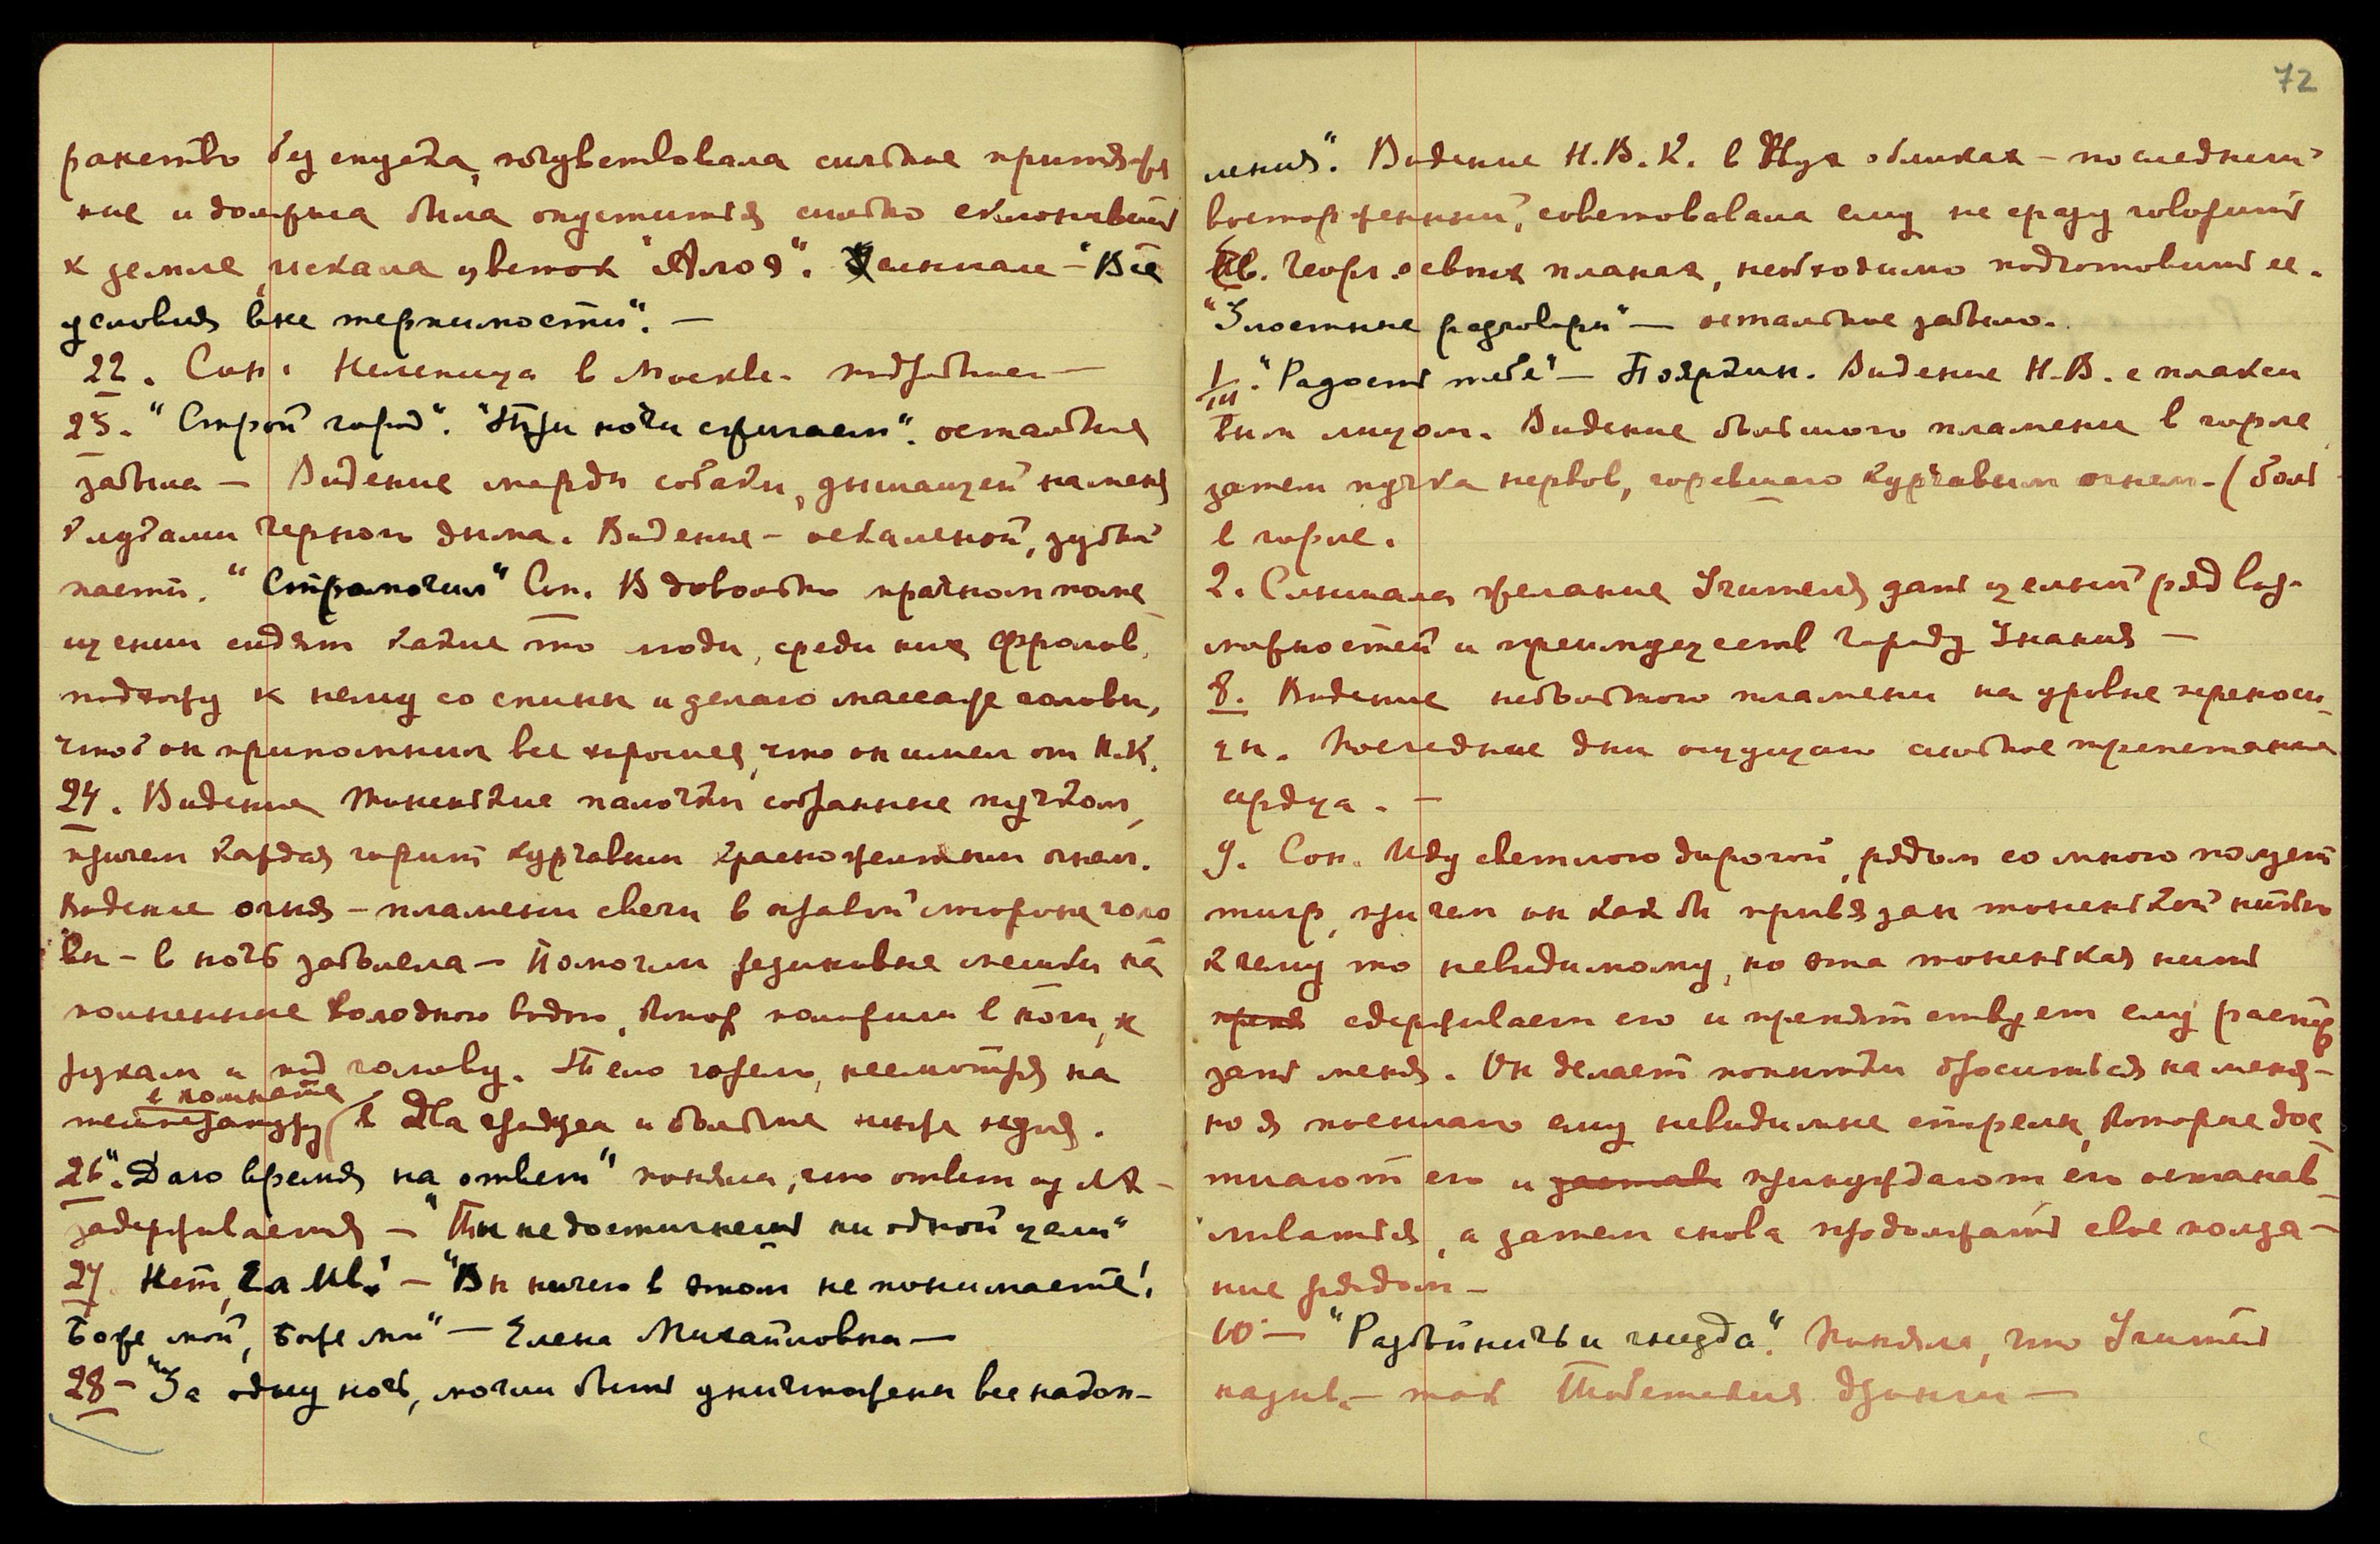 ранство без спуска, почувствовала сильные притяже
ние и должна была опуститься сильно склонившись
к земле, искала цветок "Алоэ". Услышала - "Все
условия вне терпимости". —
22. Сон. Каменица в Москве. подробнее —
23. "Строй город". "Три ночи сжигаем". остальные
забыла — Видение морды собаки, дышащей на меня
клубами черного дыма. Видение - оскаленной, зубы
пасти. "Страмогил" Сон. В довольно мрачном поме
щении сидят какие то люди, среди них Фролов,
подхожу к нему со спины и делаю массаж головы,
чтоб он припомнил все хорошее, что он имел от Н.К.
24. Видение тоненькие палочки собранные пучком,
причем каждая горит курчавым красножелтым огнем.
Видение огня - пламени свечи в правой стороне голо
вы - в ночь заболела — Помогли резиновые мешки на
полненные холодною водою, котор. положили к ногам, к
рукам и под голову. Тело горело, несмотря на
в комнате
температуру в два градуса и большие ниже нуля.
26. "Даю время на ответ" поняла, что ответ из Ам -
задерживается — "Ты не достигнешь ни одной цели"
27 Нет, Га Ив." — "Вы ничего в этом не понимаете!
Боже мой, Боже мой" — Елена Михайловна —
28 — "За одну ночь, могли быть уничтожены все накоп-
72
ления". Видение Н.В.К. в двух обликах - последний
восторженный, советовала ему не сразу говорить
Ев. Георг. о своих планах, необходимо подготовить ее.
"Злостные разговоры" — остальное забыла.
1/III. "Радость тебе" — Пояркин. Видение Н.В. с плакси
вым лицом. Видение большого пламени в горле
затем пучка нервов, горевшего курчавым огнем - (боль
в горле.
2. Слышала желание Учителя дать целый ряд воз-
можностей и преимуществ Городу Знания —
8. Видение небольшого пламени на уровне переноси-
цы. Последние дни ощущаю сильное трепетание
сердца. —
9. Сон. Иду светлою дорогой, рядом со мною ползет
тигр, причем он как бы привязан тоненькой нитью
к чему то невидимому, но эта тоненькая нить
препя сдерживает его и препятствует ему растер
зать меня. Он делает попытки броситься на меня -
но я посылаю ему невидимые стрелы, которые дос
тигают его и заставл принуждают его останав-
ливаться, а затем снова продолжать свое полза -
ние рядом —
10 — "Разбойничьи гнезда". Поняла, что Учитель
назыв. — так Тибетские дзонги —